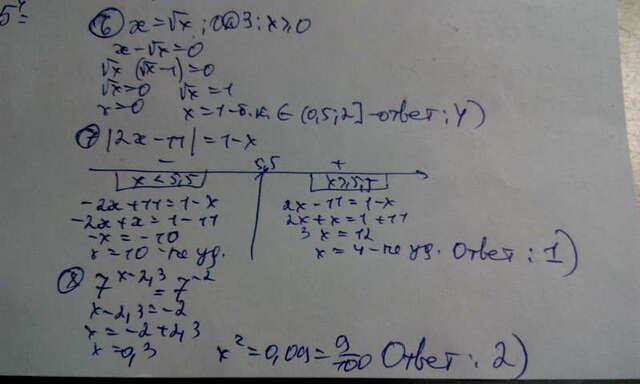 6) x = √x ; ОДЗ: x ≥ 0
x - √x = 0
√x (√x - 1) = 0
√x = 0 √x = 1
x = 0 x = 1 - т.к. ∈ (0,5; 2] - ответ: 4)
7) |2x - 11| = 1 - x
- 5,5 +
x < 5,5 x ≥ 5,5
-2x + 11 = 1 - x 2x - 11 = 1 - x
-2x + x = 1 - 11 2x + x = 1 + 11
-x = -10 3x = 12
x = 10 - не уд. x = 4 - не уд. Ответ: 1)
8) 7^(x - 2,3) = 7^(-2)
x - 2,3 = -2
x = -2 + 2,3
x = 0,3 x² = 0,09 = 9/100 Ответ: 2)